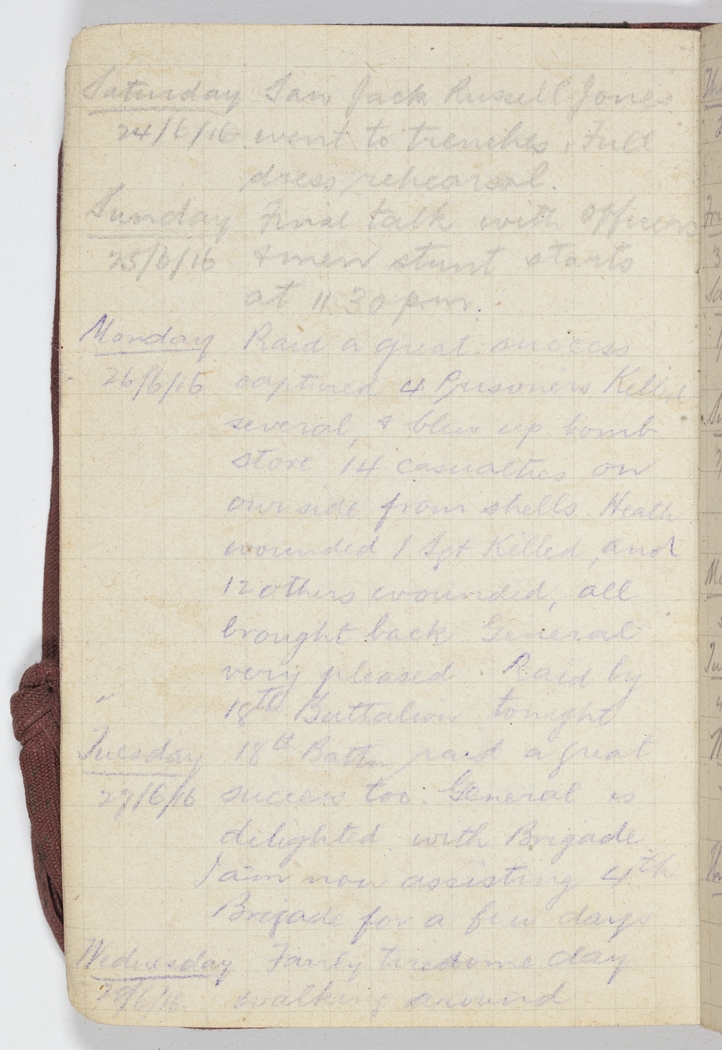 Saturday Saw Jack Russell Jones
24/6/16 went to trenches. Full
dress rehearsal.
Sunday Final talk with Officers
25/6/16 & men stunt starts
at 11.30 pm.
Monday Raid a great success
26/6/16 captured 4 Prisoners Killed
several, & blew up bomb
store 14 casualties on
our side from shells. Heath
wounded 1 Sgt Killed, and
12 others wounded, all
brought back General
very pleased. Raid by
18th Battalion tonight
Tuesday 18th Battn raid a great
27/6/16 success too. General is
delighted with Brigade
I am now assisting 4th
Brigade for a few days
Wednesday Fairly tiresome day
28/6/16. walking around